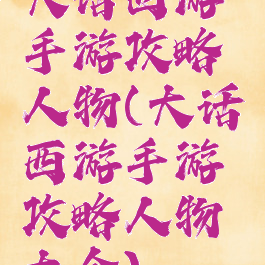 大话西游
手游攻略
人物(大话
西游手游
攻略人物
大全)